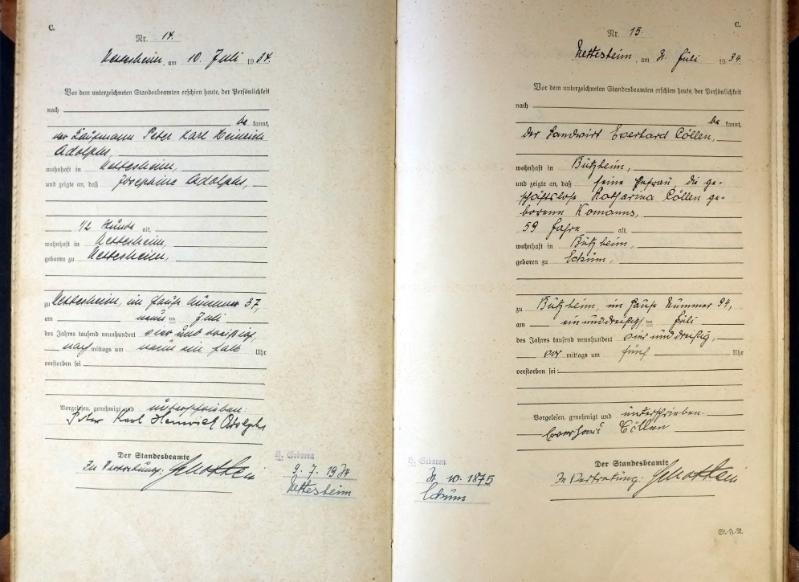 C.
Nr. 14.
Nettesheim, am 10. Juli 1934.
Vor dem unterzeichneten Standesbeamten erschien heute, der Persönlichkeit
nach
be kannt,
der Kaufmann Peter Karl Heinrich
Adolphs,
wohnhaft in Nettesheim,
und zeigte an, daß Josephine Adolphs,
1/2 Stunde alt,
wohnhaft in Nettesheim,
geboren zu Nettesheim,
zu Nettesheim, im Hause Nummer 37,
am neunten Juli
des Jahres tausend neunhundert vier und dreißig,
nachmittags um neun ein halb Uhr
verstorben sei
Vorgelesen, genehmigt und unterschrieben
Peter Karl Heinrich Adolphs
Der Standesbeamte
In Vertretung:
Geboren
9. 7. 1934
Nettesheim
C.
Nr. 15
Nettesheim, am Juli 1934.
Vor dem unterzeichneten Standesbeamten erschien heute, der Persönlichkeit
nach
be kannt,
der Landwirt Everhard Cöllen,
wohnhaft in Bützheim,
und zeigte an, daß seine Ehefrau, die ge-
schäftslose Katharina Cöllen ge-
borene Komanns,
59 Jahre alt,
wohnhaft in Bützheim,
geboren zu Eckum,
zu Bützheim, im Hause Nummer 94,
am einunddreißigsten Juli
des Jahres tausend neunhundert vier und dreißig,
vormittags um fünf Uhr
verstorben sei:
Vorgelesen, genehmigt und unterschrieben
Everhard Cöllen
Der Standesbeamte
In Vertretung:
Geboren
10. 1875
Eckum